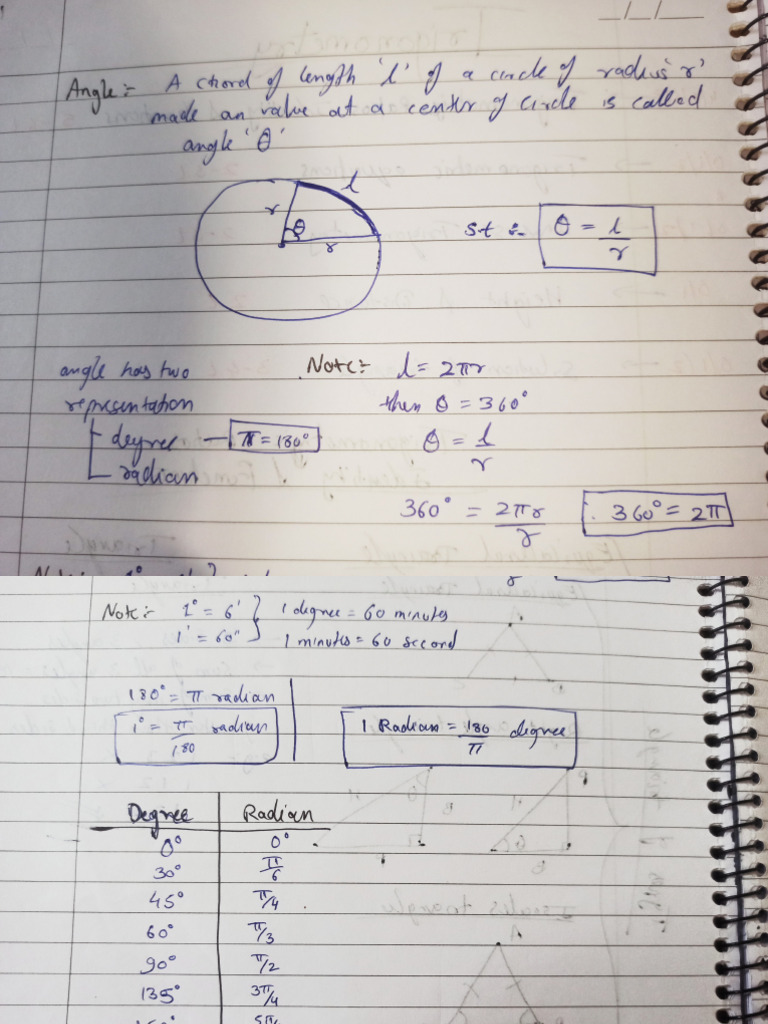 _/_/_
Angle:- A chord of length 'l' of a circle of radius 'r'
made an value at a center of circle is called
angle 'θ'
l
r
θ
r
st :- θ = l/r
angle has two
representation
degree — π = 180°
radian
Note:- l = 2πr
then θ = 360°
θ = l/r
360° = 2πr/r
360° = 2π
Note:- 1° = 6' } 1 degree = 60 minutes
1' = 60" } 1 minutes = 60 second
180° = π radian
1° = π/180 radian
1 Radian = 180/π degree
Degree Radian
0° 0°
30° π/6
45° π/4
60° π/3
90° π/2
135° 3π/4